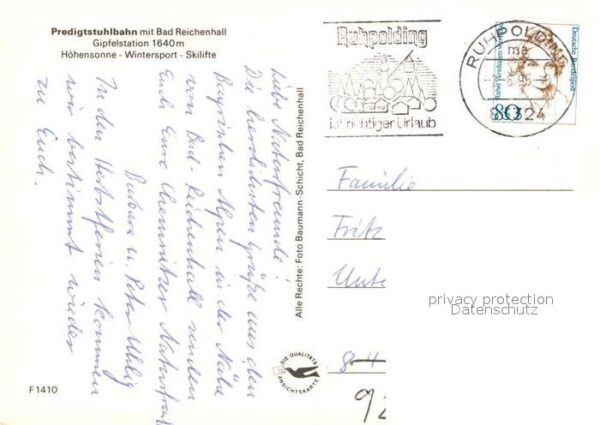 Predigtstuhlbahn mit Bad Reichenhall
Gipfelstation 1640 m
Höhensonne - Wintersport - Skilifte
Liebe Naturfreunde!
Die herzlichsten Grüße aus den
Bayrischen Alpen in der Nähe
von Bad-Reichenhall senden
Euch Eure Chemnitzer Naturfreunde
Barbara u. Peter Uhlig
In den Herbstferien kommen
wir bestimmt wieder
zu Euch.
F 1410
Alle Rechte: Foto Baumann-Schicht, Bad Reichenhall
DIE QUALITÄTS
ANSICHTSKARTE
Ruhpolding
ist richtiger Urlaub
RUHPOLDING
ma
8324
Deutsche Bundespost
80
Familie
Fritz
Unte
privacy protection
Datenschutz
92